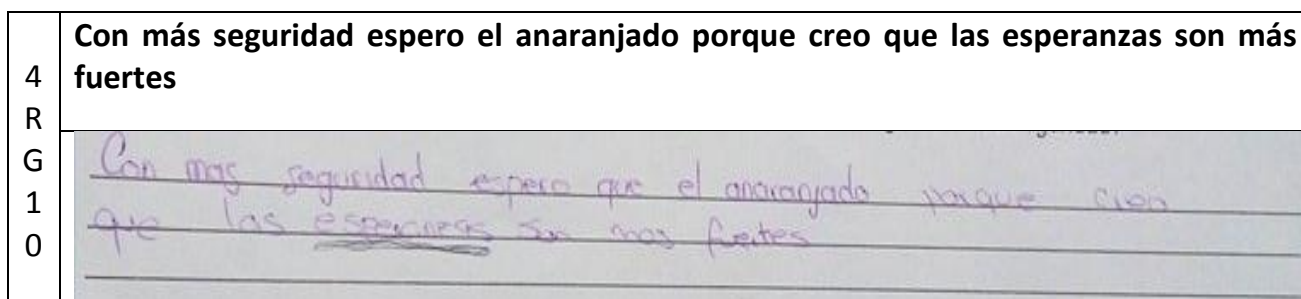 4
R
G
1
0
Con más seguridad espero el anaranjado porque creo que las esperanzas son más
fuertes
Con mas seguridad espero que el anaranjado porque creo
que las esperanzas son mas fuertes